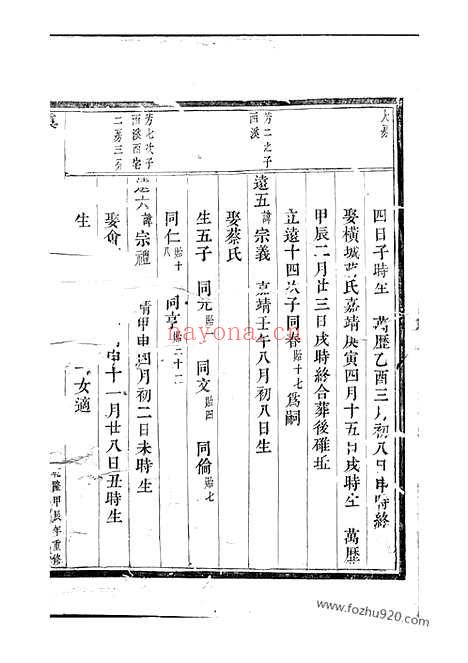 大房
四日子時生 萬歷乙酉三月初八日申時終
娶橫城葛氏嘉靖庚寅四月十五日戌時生 萬歷
甲辰二月廿三日戌時終合葬後碓坵
立遠十四次子同春貽十七為嗣
芳二之子
西溪
遠五諱宗義 嘉靖壬午八月初八日生
娶蔡氏
生五子 同元貽 同文貽四 同倫貽七
同仁貽十八 同亨貽二十二
芳七次子
西溪西宅
二房三分
遠六諱宗禮 靖甲申四月初二日未時生
娶 寅十一月廿八日丑時生
生 女適
乾隆甲辰年重修
nayona.cn
www.fozhu920.com